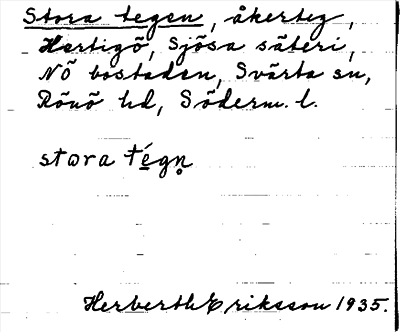 Stora tegen, åkerteg,
Hertigö, Sjösa säteri,
NÖ bostaden, Svärta sn,
Rönö hd, Söderm. l.
stora tégn̥
Herberth Eriksson 1935.